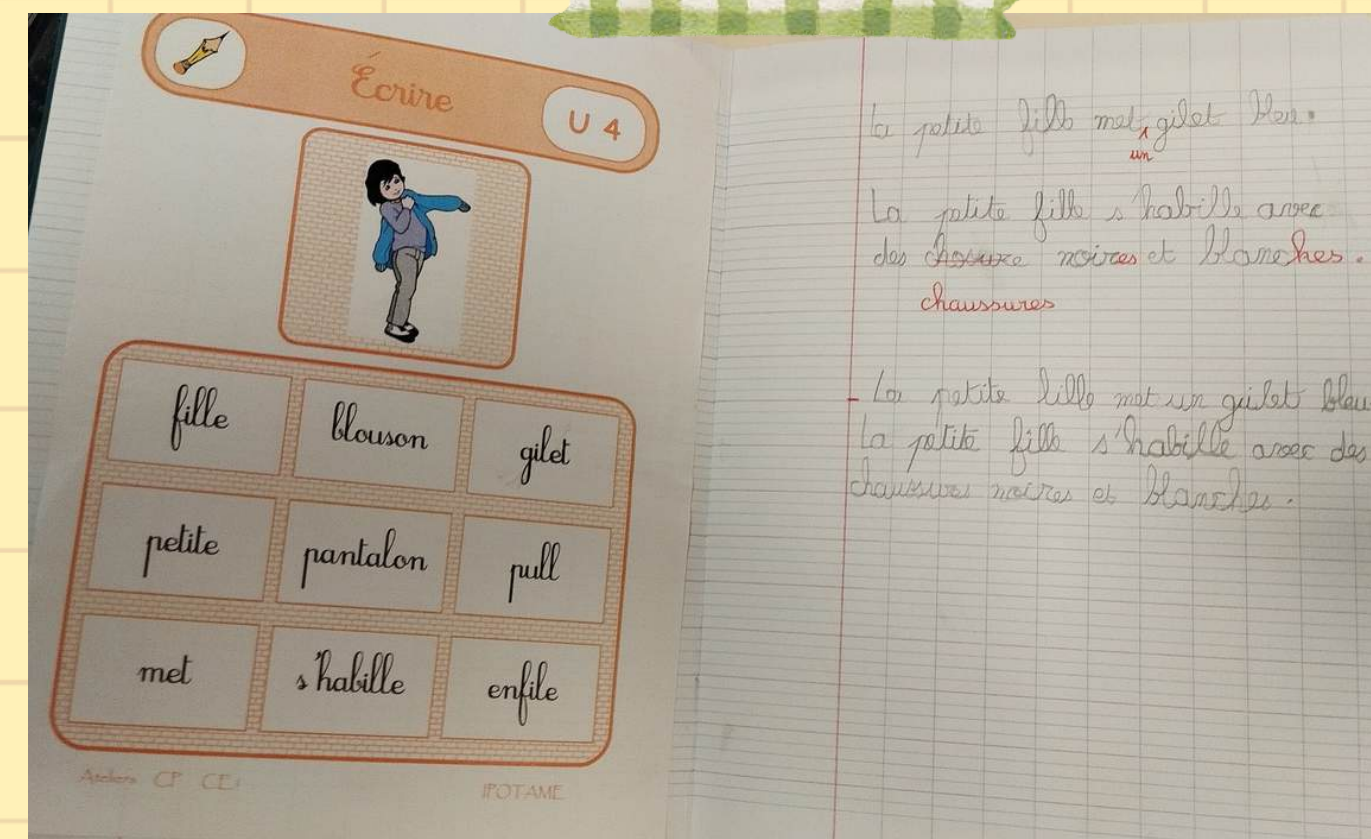 Écrire
U 4
fille
blouson
gilet
petite
pantalon
pull
met
s'habille
enfile
Ateliers CP CE1
IPOTAME
la petite fille met gilet bleu.
un
La petite fille s'habille avec
des chosure noires et blanches.
chaussures
- La petite fille met un guilet bleu
la petite fille s'habille avec des
chaussures noires et blanches.